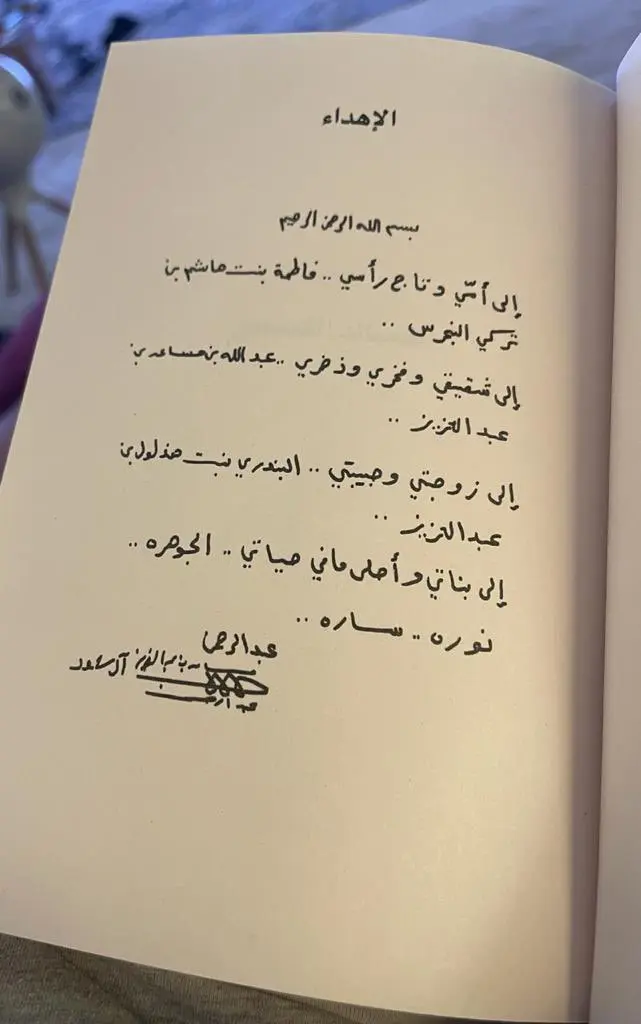 الإهداء
بسم الله الرحمن الرحيم
إلى أمّي وتاج رأسي .. فاطمة بنت هاشم بن
تركي النجرس ..
إلى شقيقي وفخري وذخري .. عبدالله بن مساعد بن
عبدالعزيز ..
إلى زوجتي وحبيبتي .. البندري بنت هذلول بن
عبدالعزيز ..
إلى بناتي وأحلى مافي حياتي .. الجوهره ..
نوره .. ساره ..
عبدالرحمن
آل سعود